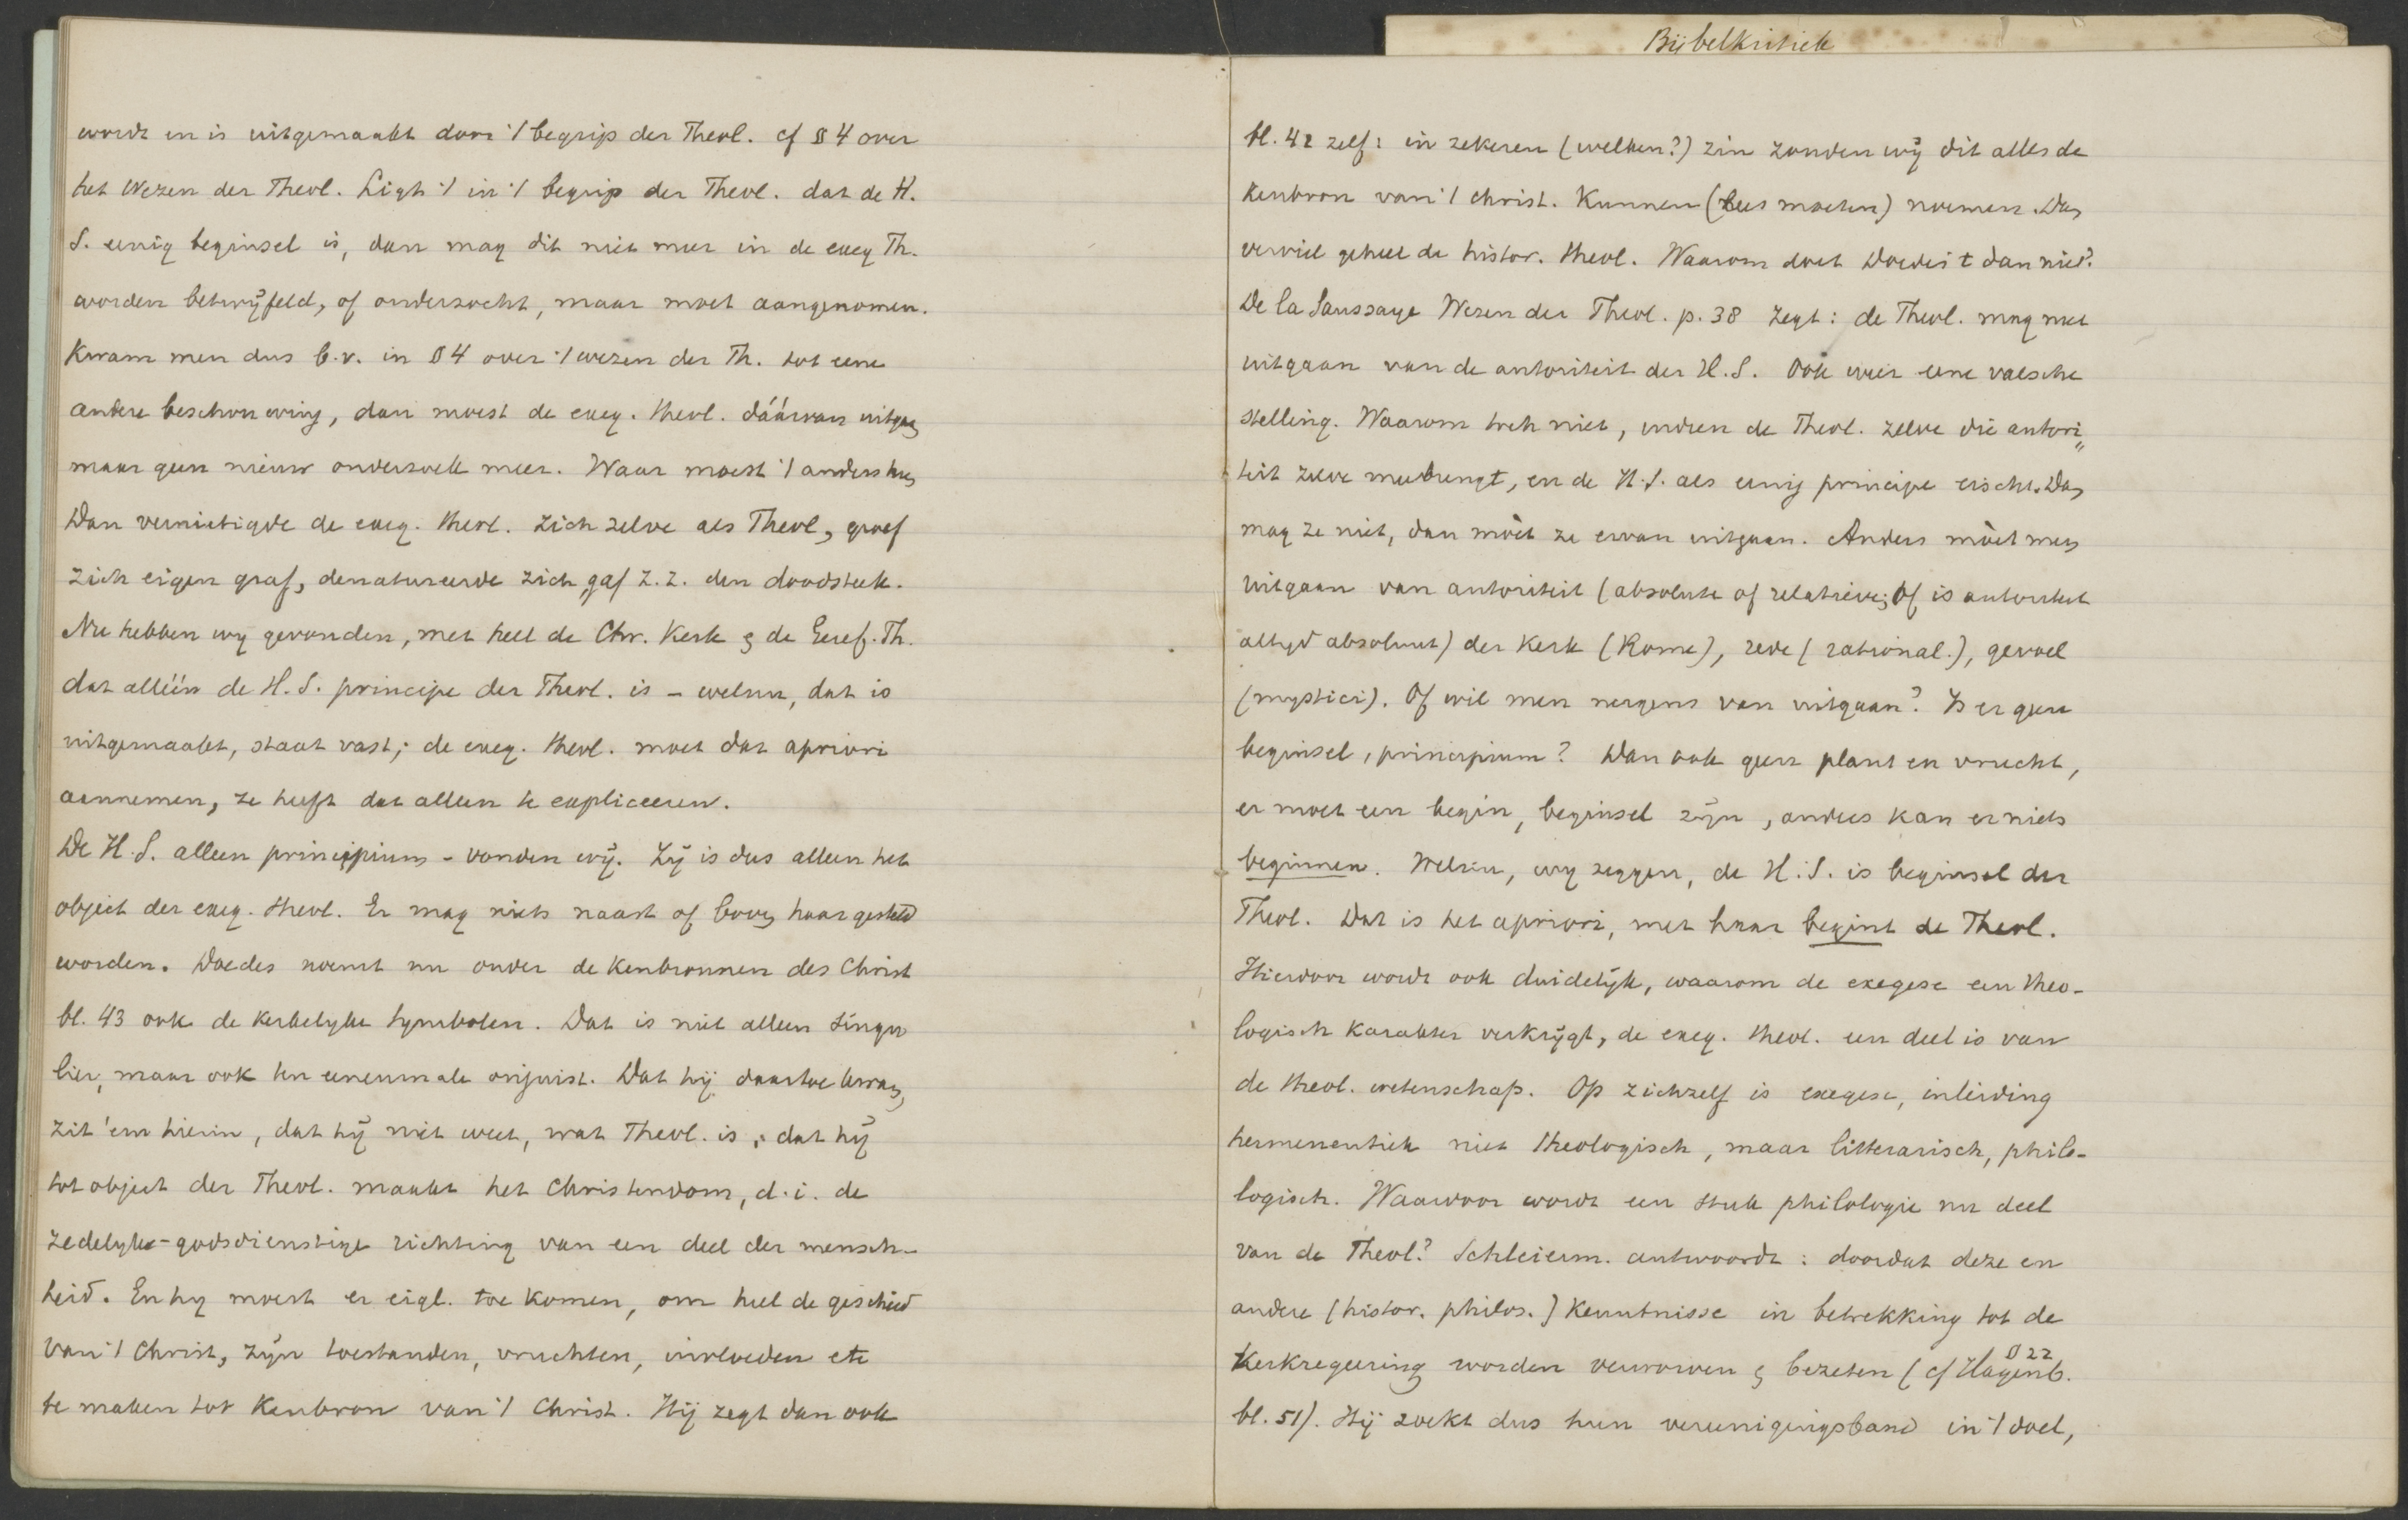 Bijbelkritiek
wordt en is uitgemaakt door 't begrip der Theol. cf § 4 over
het Wezen der Theol. Ligt 't in 't begrip der Theol. dat de H.
S. eenig beginsel is, dan mag dit niet meer in de exeg Th.
worden betwijfeld, of onderzocht, maar moet aangenomen.
Kwam men dus b.v. in § 4 over 't wezen der Th. tot eene
andere beschouwing, dan moest de exeg. theol. dáárvan uitgaan
maar geen nieuw onderzoek meer. Waar moest 't anders heen
Dan vernietigde de exeg. theol. zich zelve als Theol, groef
zich eigen graf, denatureerde zich, gaf z.z. den doodsteek.
Nu hebben wy gevonden, met heel de Chr. Kerk & de Geref. Th.
dat alléén de H.S. principe der Theol. is - welnu, dat is
uitgemaakt, staat vast; de exeg. theol. moet dat apriori
aannemen, ze heeft dat alleen te expliceeren.
De H.S. alleen principium - vonden wij. Zij is dus alleen het
object der exeg. theol. Er mag niets naast of boven haar gesteld
worden. Doedes noemt nu onder de kenbronnen des Christ
bl. 43 ook de kerkelyke symbolen. Dat is niet alleen singu
lier, maar ook ten eenenmale onjuist. Dat hij daartoe kwam,
zit 'em hierin, dat hij niet weet, wat Theol. is, dat hij
tot object der Theol. maakt het Christendom, d.i. de
zedelyke-godsdienstige richting van een deel der mensch-
heid. En hy moest er eigl. toe komen, om heel de geschied
van 't Christ, zijn toestanden, vruchten, invloeden etc
te maken tot Kenbron van 't Christ. Hij zegt dan ook
bl. 42 zelf: in zekeren (welken?) zin zouden wij dit alles de
Kenbron van 't christ. Kunnen (lees moeten) noemen. Dan
verviel geheel de histor. theol. Waarom doet Doedes t dan niet?
De la Saussaye Wezen der Theol. p. 38 zegt: de Theol. mag niet
uitgaan van de autoriteit der H.S. Ook weer eene valsche
stelling. Waarom toch niet, indien de Theol. zelve die autori„
teit zelve meebrengt, en de H.S. als eenig principe eischt. Dan
mag ze niet, dan mòet ze ervan uitgaan. Anders mòet men
uitgaan van autoriteit (absolute of relatieve; of is autoriteit
altyd absoluut) der Kerk (Rome), rede (rational.), gevoel
(mystici). Of wil men nergens van uitgaan? Is er geen
beginsel, principium? Dan ook geen plant en vrucht,
er moet een begin, beginsel zijn, anders kan er niets
beginnen. Welnu, wy zeggen, de H.S. is beginsel der
Theol. Dat is het apriori, met haar begint de Theol.
Hierdoor wordt ook duidelijk, waarom de exegese een theo-
logisch karakter verkrijgt, de exeg. theol. een deel is van
de theol. wetenschap. Op zichzelf is exegese, inleiding
hermeneutiek niet theologisch, maar litterarisch, philo-
logisch. Waardoor wordt een stuk philologie nu deel
van de Theol? Schleierm. antwoordt: doordat deze en
andere (histor. philos.) Kenntnisse in betrekking tot de
Kerkregeering worden verworven & bezeten (cf Hagenb. § 22
bl. 51). Hij zoekt dus hun vereenigingsband in 't doel,